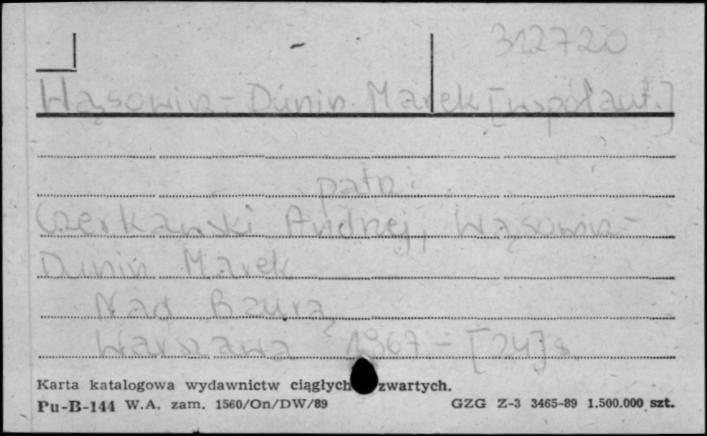 312720
Wąsowicz-Dunin Marek [współaut.]
patrz:
Czerkawski Andrzej, Wąsowicz-
Dunin Marek
Nad Bzurą
Warszawa 1967 - [24] s.
Karta katalogowa wydawnictw ciągłych zwartych.
Pu-B-144 W.A. zam. 1560/On/DW/89 GZG Z-3 3465-89 1.500.000 szt.